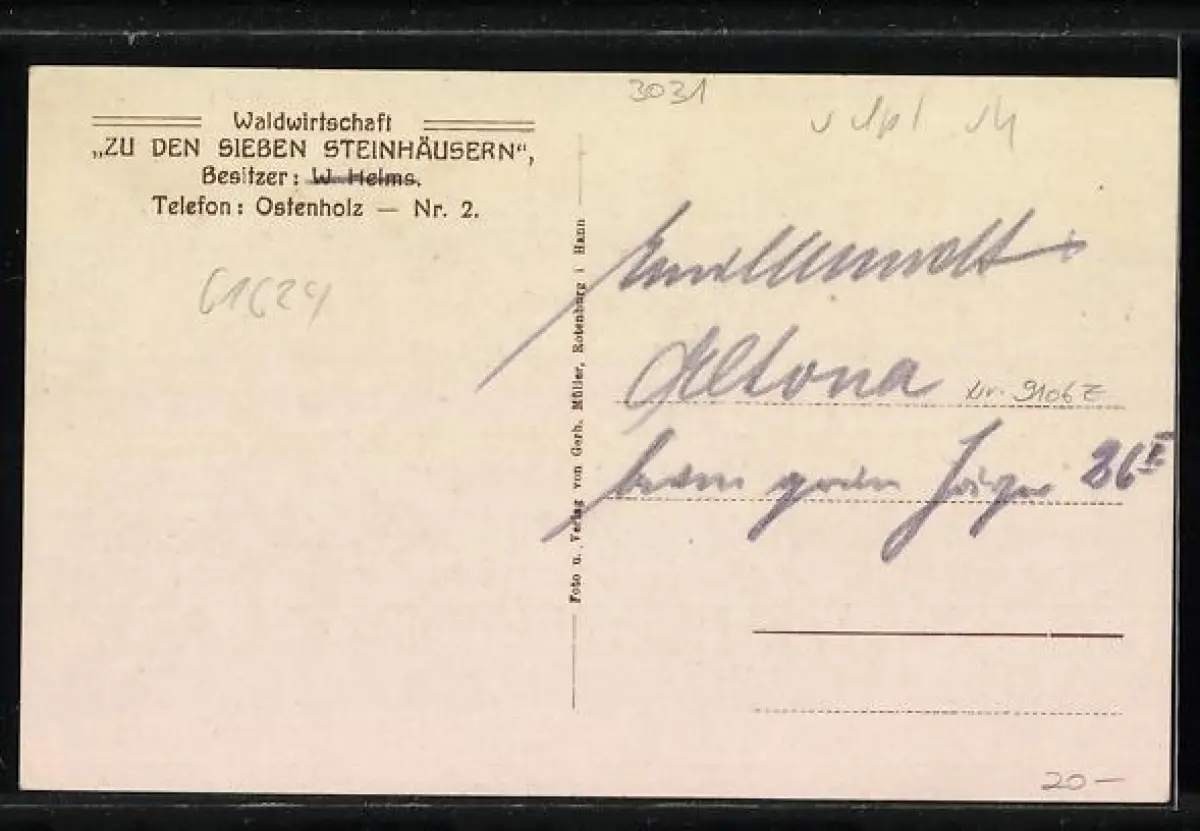 3031
Waldwirtschaft
„ZU DEN SIEBEN STEINHÄUSERN“,
Besitzer: W. Helms.
Telefon: Ostenholz — Nr. 2.
61624
Foto u. Verlag von Gerh. Müller, Rotenburg i Hann
Altona
Nr. 9106Z
beim grünen Jäger 26 II
20 —